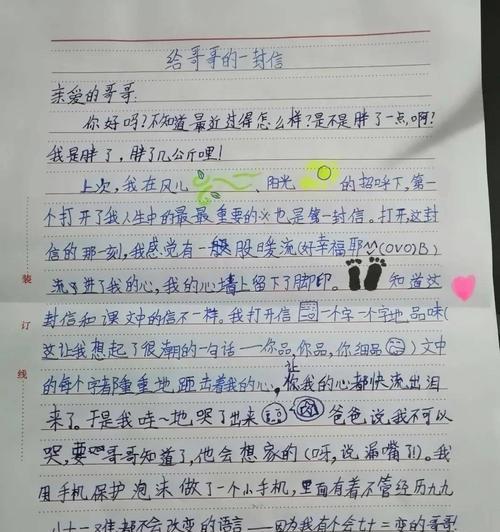 给哥哥的一封信
亲爱的哥哥:
你好吗?不知道最近过得怎么样?是不是胖了一点,啊?
我是胖了,胖了几公斤哩!
上次,我在风儿、阳光的招呼下,第一
个打开了我人生中的最最重要的也是第一封信。打开,这封
信的那一刻,我感觉有一股暖流(好幸福耶(OVO)B)
流进了我的心,我的心墙上留下了脚印。知道这
封信和课文中的信不一样。我打开信一个字一个字地品味(
这让我想起了很潮的一句话——你品,你品,你细品)文中
的每个字都重重地距击着我的心,让我的心都快流出泪
来了。于是我哇~地哭了出来爸爸说我不可以
哭,要哥哥知道了,他会想家的(呀,说漏嘴了!)。我
用手机保护泡沫做了一个小手机,里面有着不管经历九九
八十一难都不会改变的语言——因为我有个会七十二变的哥哥
装
订
线